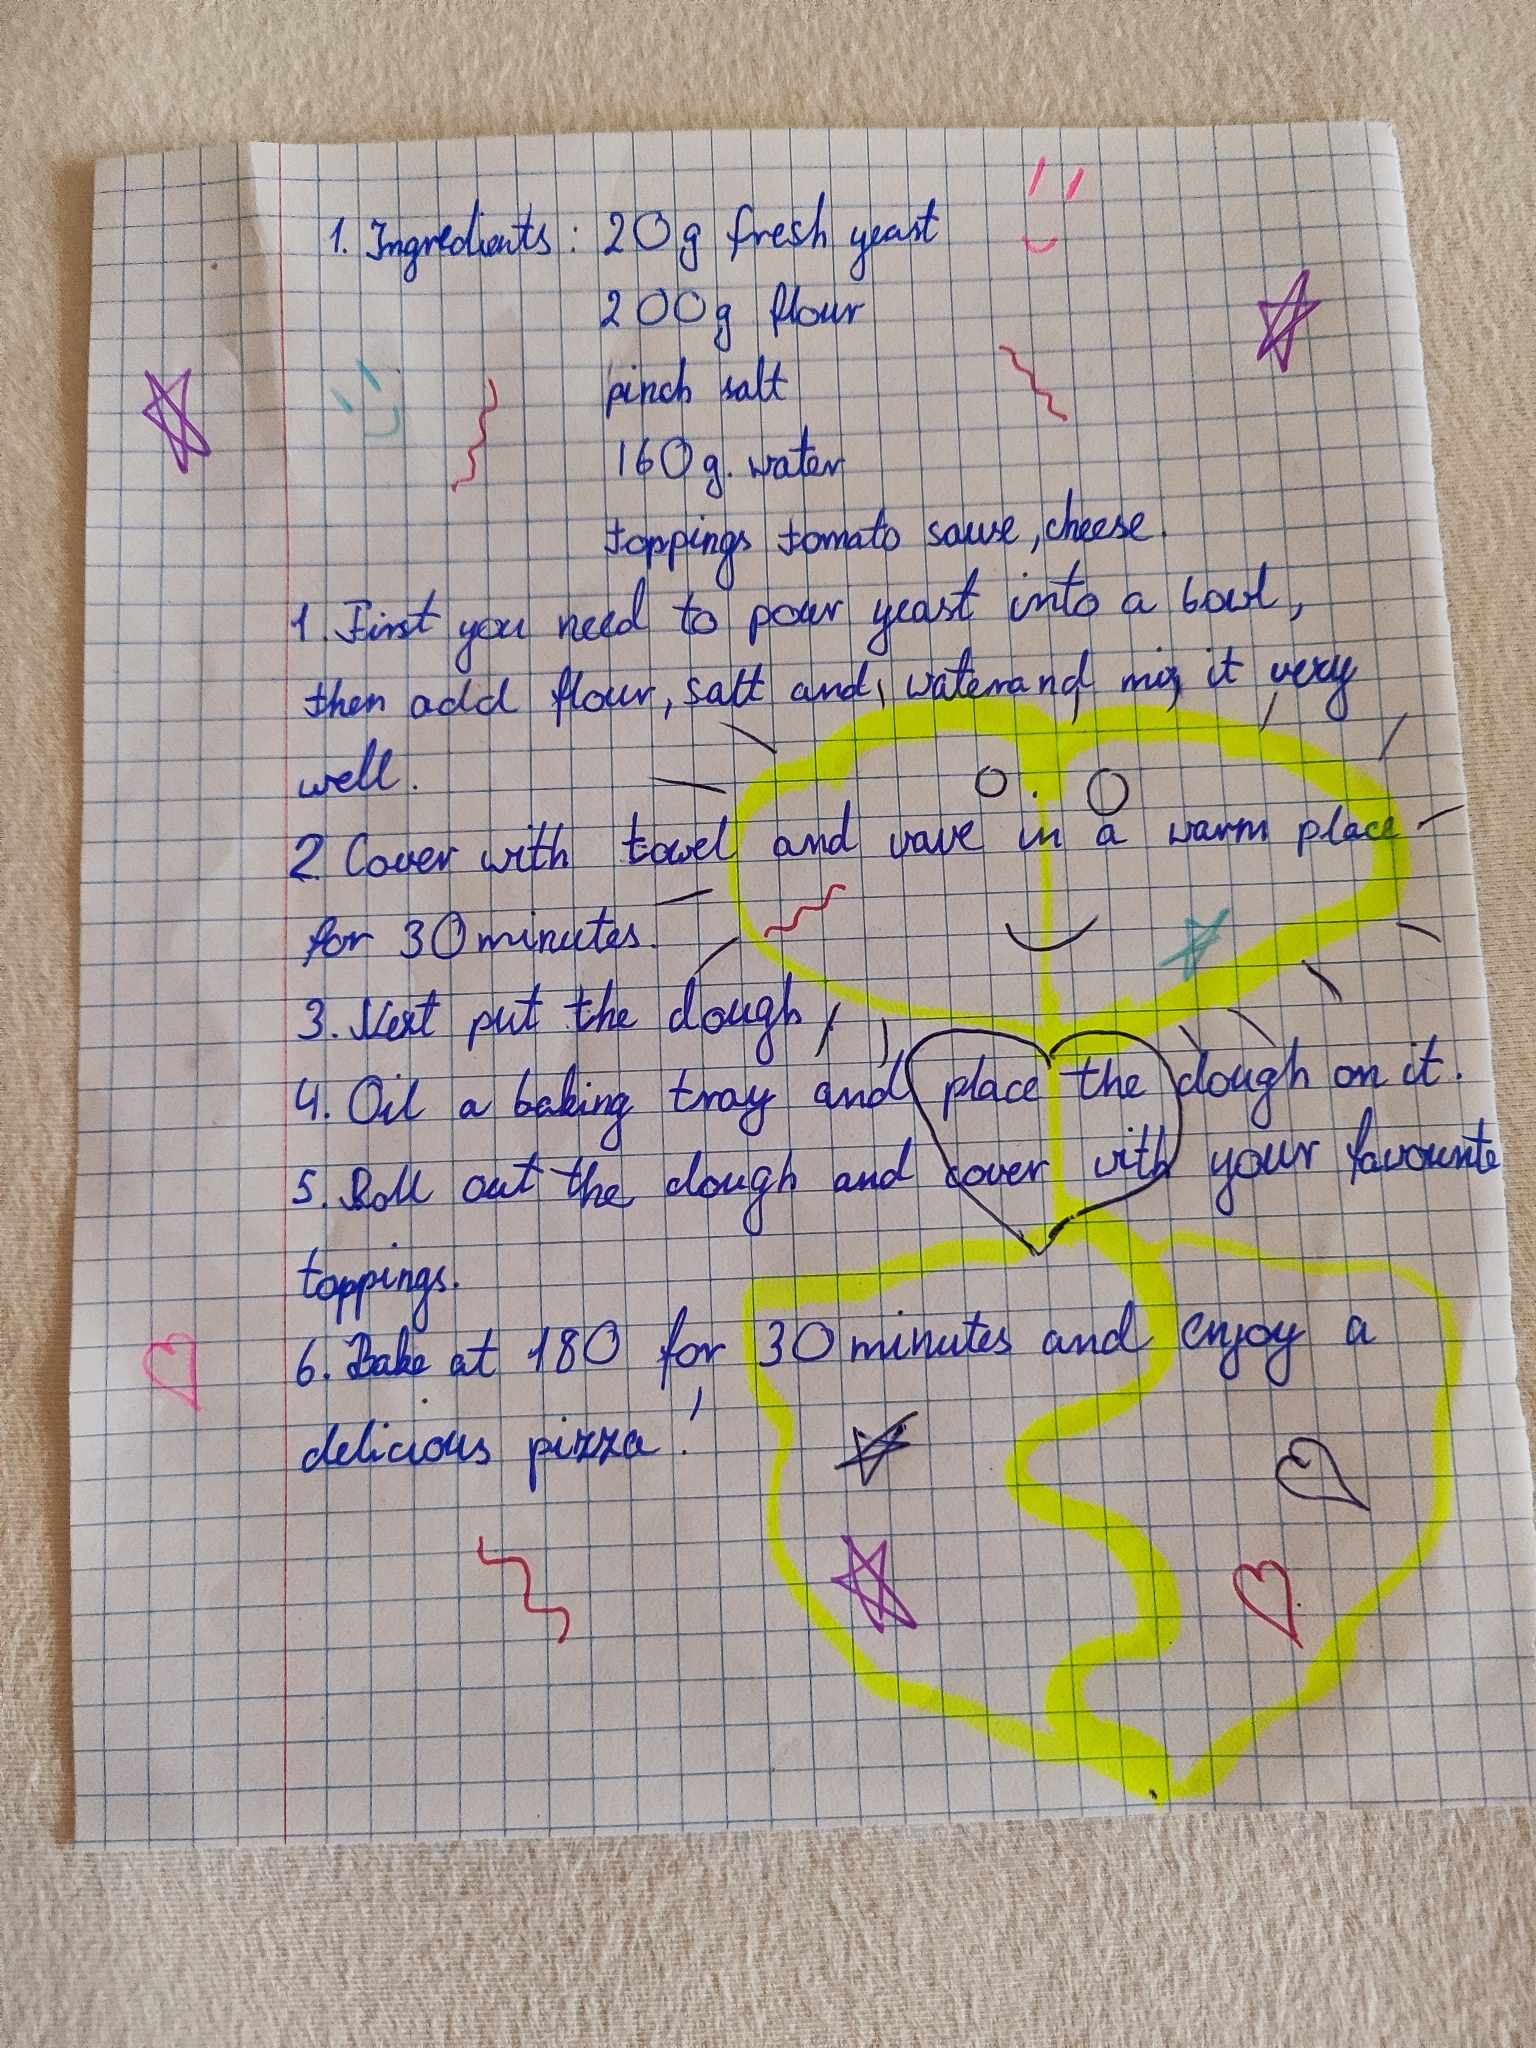 1. Ingredients: 20g fresh yeast
200g flour
pinch salt
160g. water
toppings tomato sause, cheese.
1. First you need to pour yeast into a bowl,
then add flour, salt and, water and mix it very
well.
2 Cover with towel and vave in a warm place
for 30 minutes.
3. Next put the dough,
4. Oil a baking tray and place the dough on it.
5. Roll out the dough and cover with your favourite
toppings.
6. Bake at 180 for 30 minutes and enjoy a
delicious pizza!